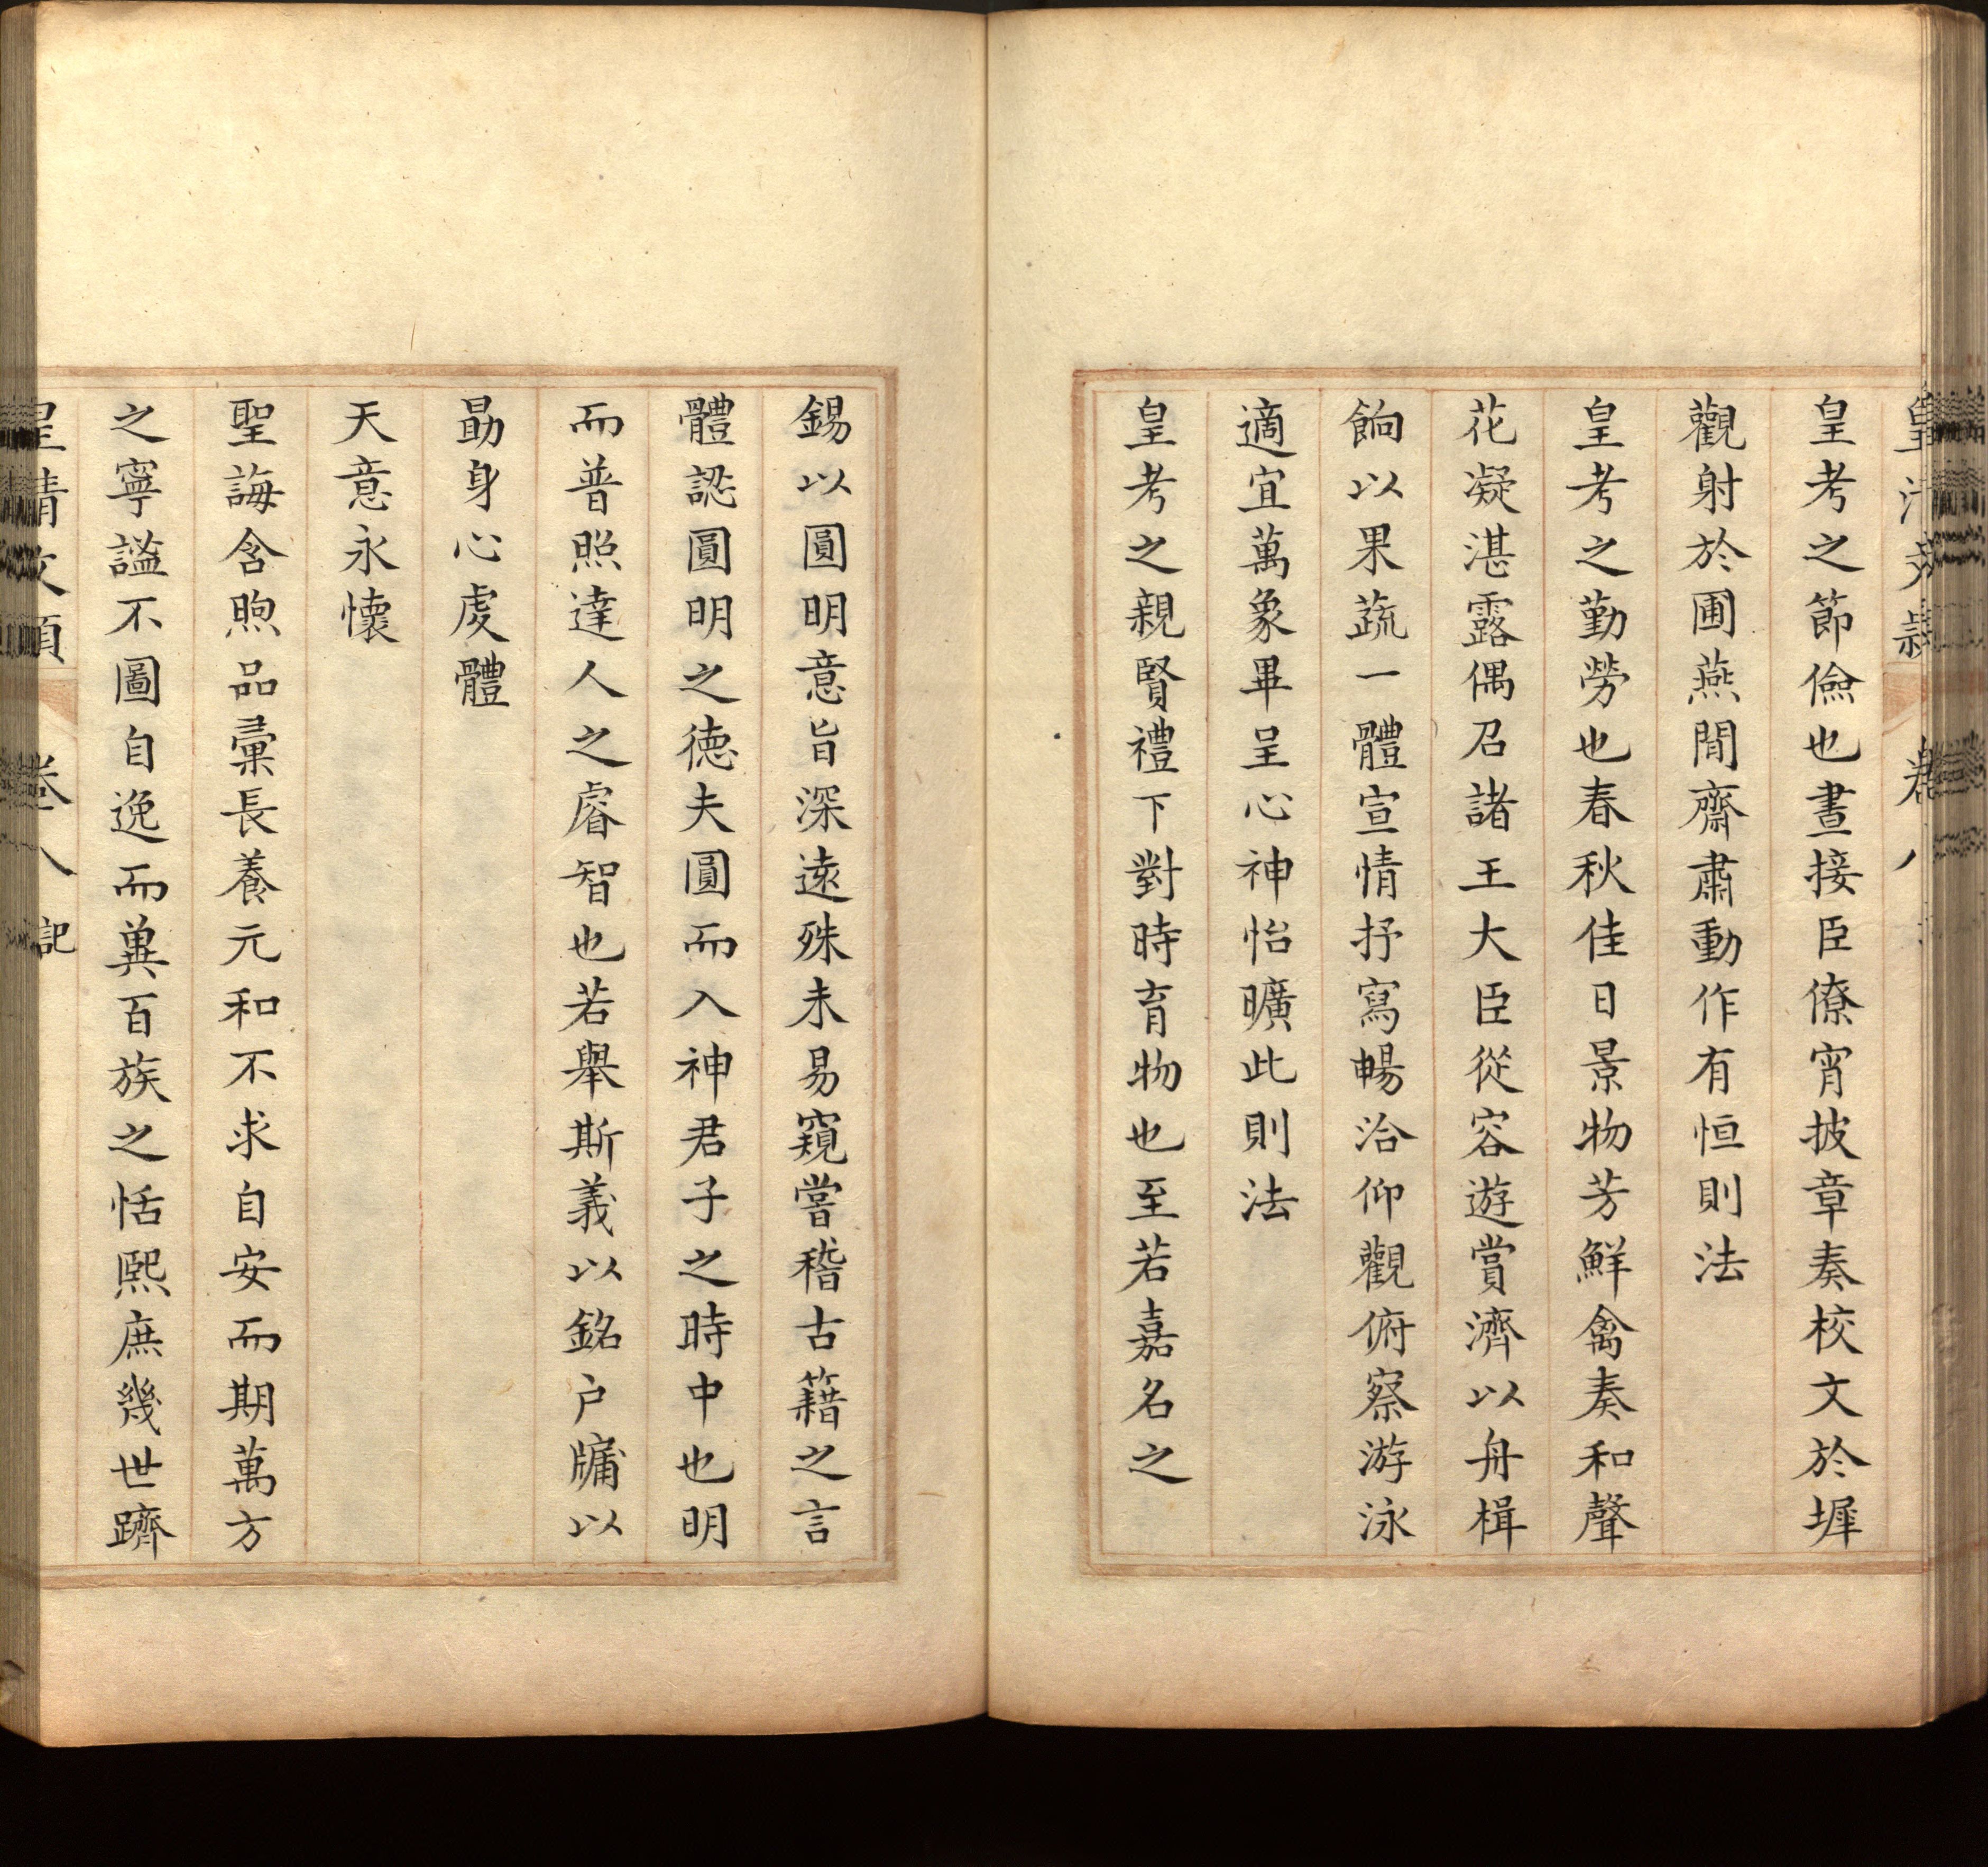 皇考之節儉也晝接臣僚宵披章奏校文於墀
觀射於圃燕閒齋肅動作有恒則法
皇考之勤勞也春秋佳日景物芳鮮禽奏和聲
花凝湛露偶召諸王大臣從容遊賞濟以舟楫
餉以果蔬一體宣情抒寫暢洽仰觀俯察游泳
適宜萬象畢呈心神怡曠此則法
皇考之親賢禮下對時育物也至若嘉名之
錫以圓明意旨深遠殊未易窺嘗稽古籍之言
體認圓明之德夫圓而入神君子之時中也明
而普照達人之睿智也若舉斯義以銘户牖以
勗身心虔體
天意永懷
聖誨含煦品彙長養元和不求自安而期萬方
之寧謐不圖自逸而兾百族之恬熙庶幾世躋
皇清文潁 卷八 記